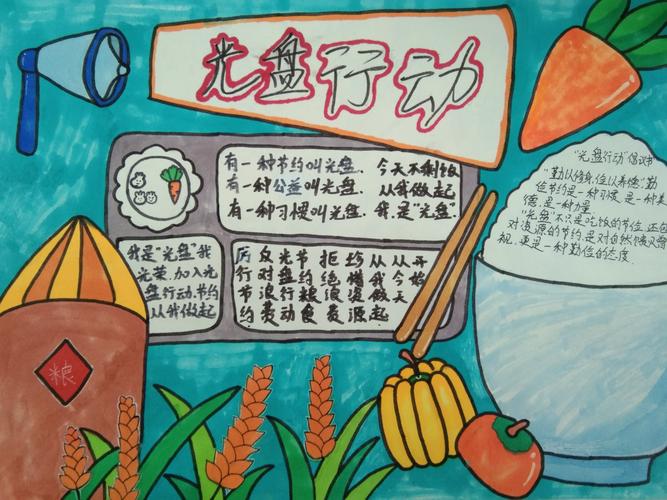 光盘行动
有一种节约叫光盘. 今天不剩饭
有一种公益叫光盘. 从我做起
有一种习惯叫光盘. 我是"光盘".
我是"光盘"我
光荣.加入光
盘行动.节约
从我做起
厉行节约
反对浪费
光盘行动
节约粮食
拒绝浪费
珍惜资源
从我做起
从今天
开始
"光盘行动"倡议书
"勤以修身,俭以养德".勤
俭节约是一种习惯 是一种美
德 是一种力量
"光盘"不只是吃饭的节俭,还
对资源的节约.是对自然
视.更是一种勤俭的态度.
粮